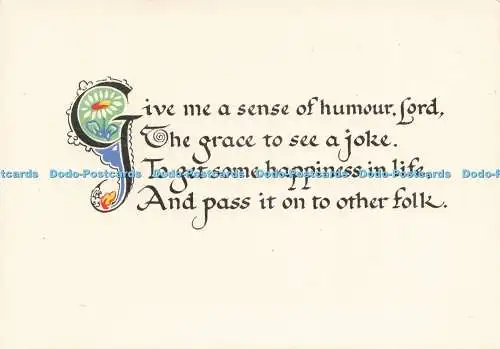 Give me a sense of humour, Lord,
The grace to see a joke.
To get some happiness in life,
And pass it on to other folk.
Dodo-Postcards Dodo-Postcards Dodo-Postcards Dodo-Postcards Dodo-Postcards